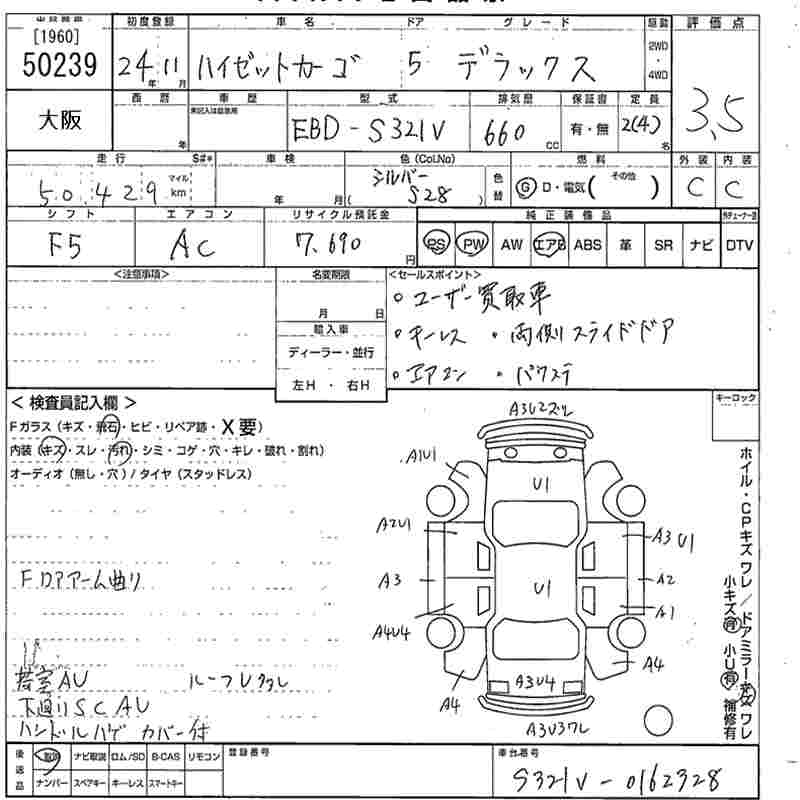 [1960]
50239
初度登録 車名 ドア グレード 駆動 評価点
24年 11月 ハイゼットカーゴ 5 デラックス 2WD・4WD
3.5
大阪
西暦 車歴 型式 排気量 保証書 定員
年 EBD-S321V 660 cc 有・無 2(4)名
走行 S#* 車検 色(Col.No) 燃料 外装 内装
50,429 マイル km 年 月 シルバー (S28) 色替 G・D・電気( その他 ) C C
シフト エアコン リサイクル預託金 純正装備品
F5 AC 7,690円 PS PW AW エアB ABS 革 SR ナビ DTV
<注意事項> 名変期限 <セールスポイント>
月 日
輸入車
ディーラー・並行
左H・右H
○ユーザー買取車
○キーレス ・両側スライドドア
○エアコン ・パワステ
キーロック
< 検査員記入欄 >
Fガラス (キズ・飛石・ヒビ・リペア跡・X要)
内装 (キズ・スレ・汚れ・シミ・コゲ・穴・キレ・破れ・割れ)
オーディオ (無し・穴) / タイヤ (スタッドレス)
A3U2ズレ
A1U1
U1
A2U1
A3U1
A3
A2
U1
A1
A4U4
A4
A4
A3U4
A3U3ワレ
ホイル・CPキズ ワレ/ドアミラーキズ ワレ
小キズ有 小U有 補修有
Fロアアーム曲り
荷室AU
下廻りSCAU
ハンドルハゲ カバー付
後送品 取説 ナビ取説 ロム/SD B-CAS リモコン 登録番号 車台番号
ナンバー スペアキー キーレス スマートキー S321V-0162328